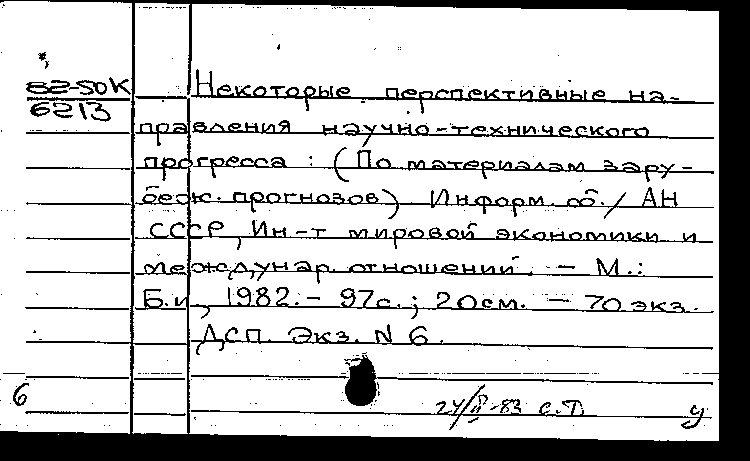 82-50К
6213
Некоторые перспективные на-
правления научно-технического
прогресса : (По материалам зару-
беж. прогнозов) Информ. сб. / АН
СССР, Ин-т мировой экономики и
междунар. отношений. – М.:
Б.и., 1982. – 97с.; 20см. – 70 экз.
ДСП. Экз. N 6.
6
24/II-83 С.Т. у